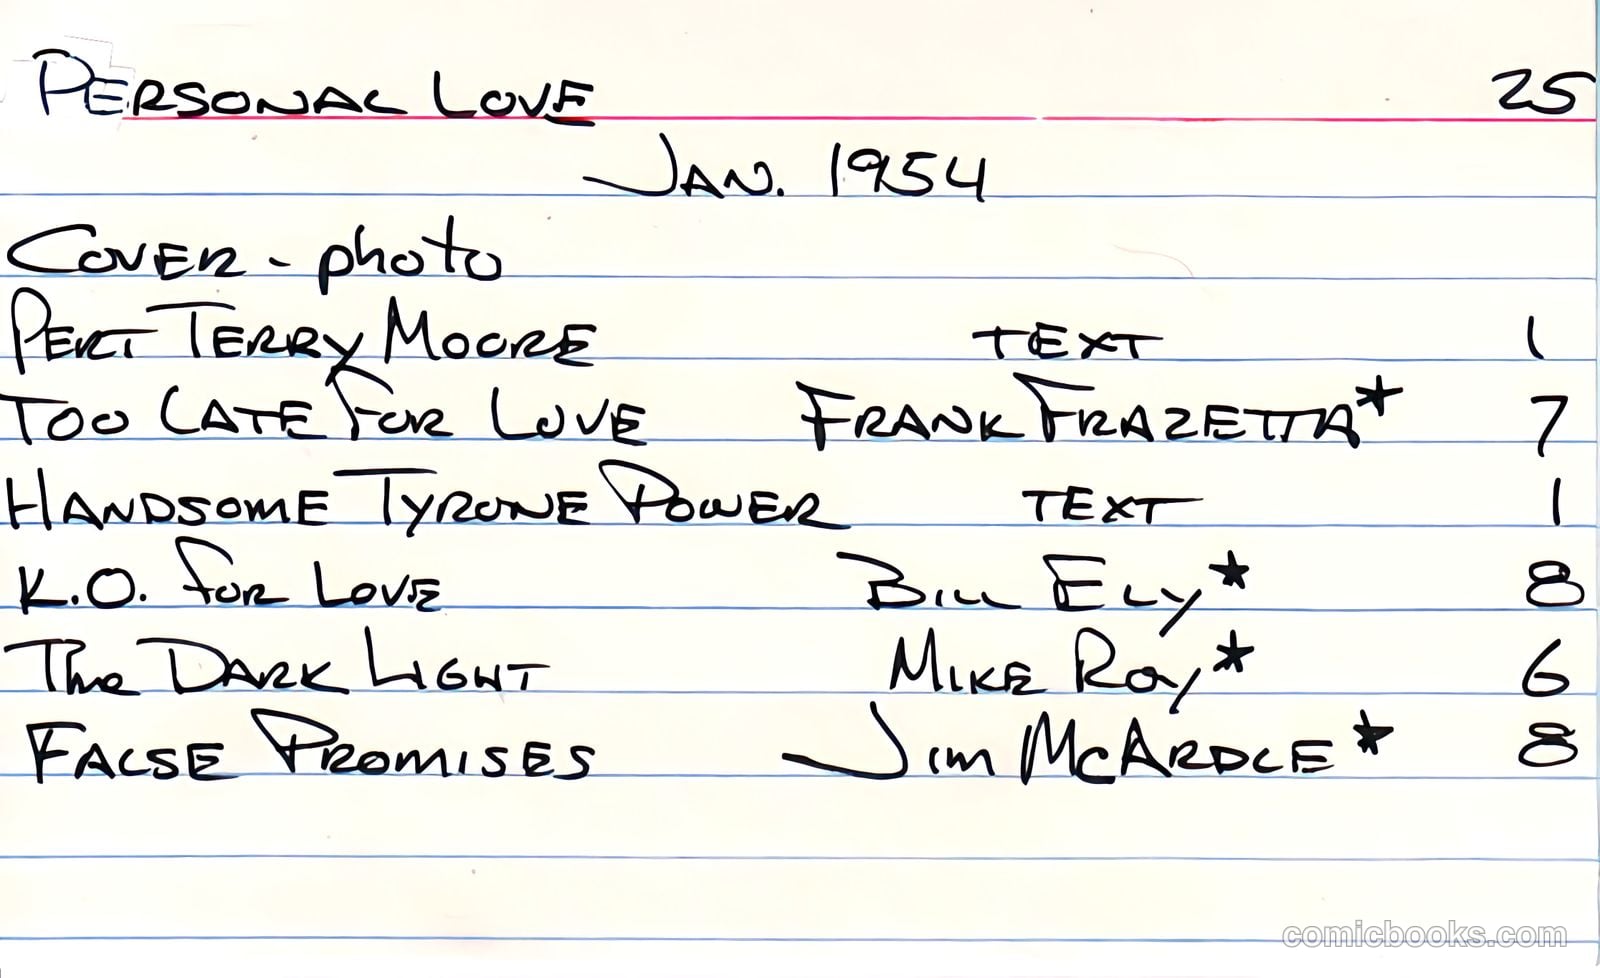 PERSONAL LOVE 25
JAN. 1954
COVER - photo
PERT TERRY MOORE TEXT 1
TOO LATE FOR LOVE FRANK FRAZETTA* 7
HANDSOME TYRONE POWER TEXT 1
K.O. FOR LOVE BILL ELY* 8
The DARK LIGHT MIKE ROY* 6
FALSE PROMISES JIM McARDLE* 8
comicbooks.com